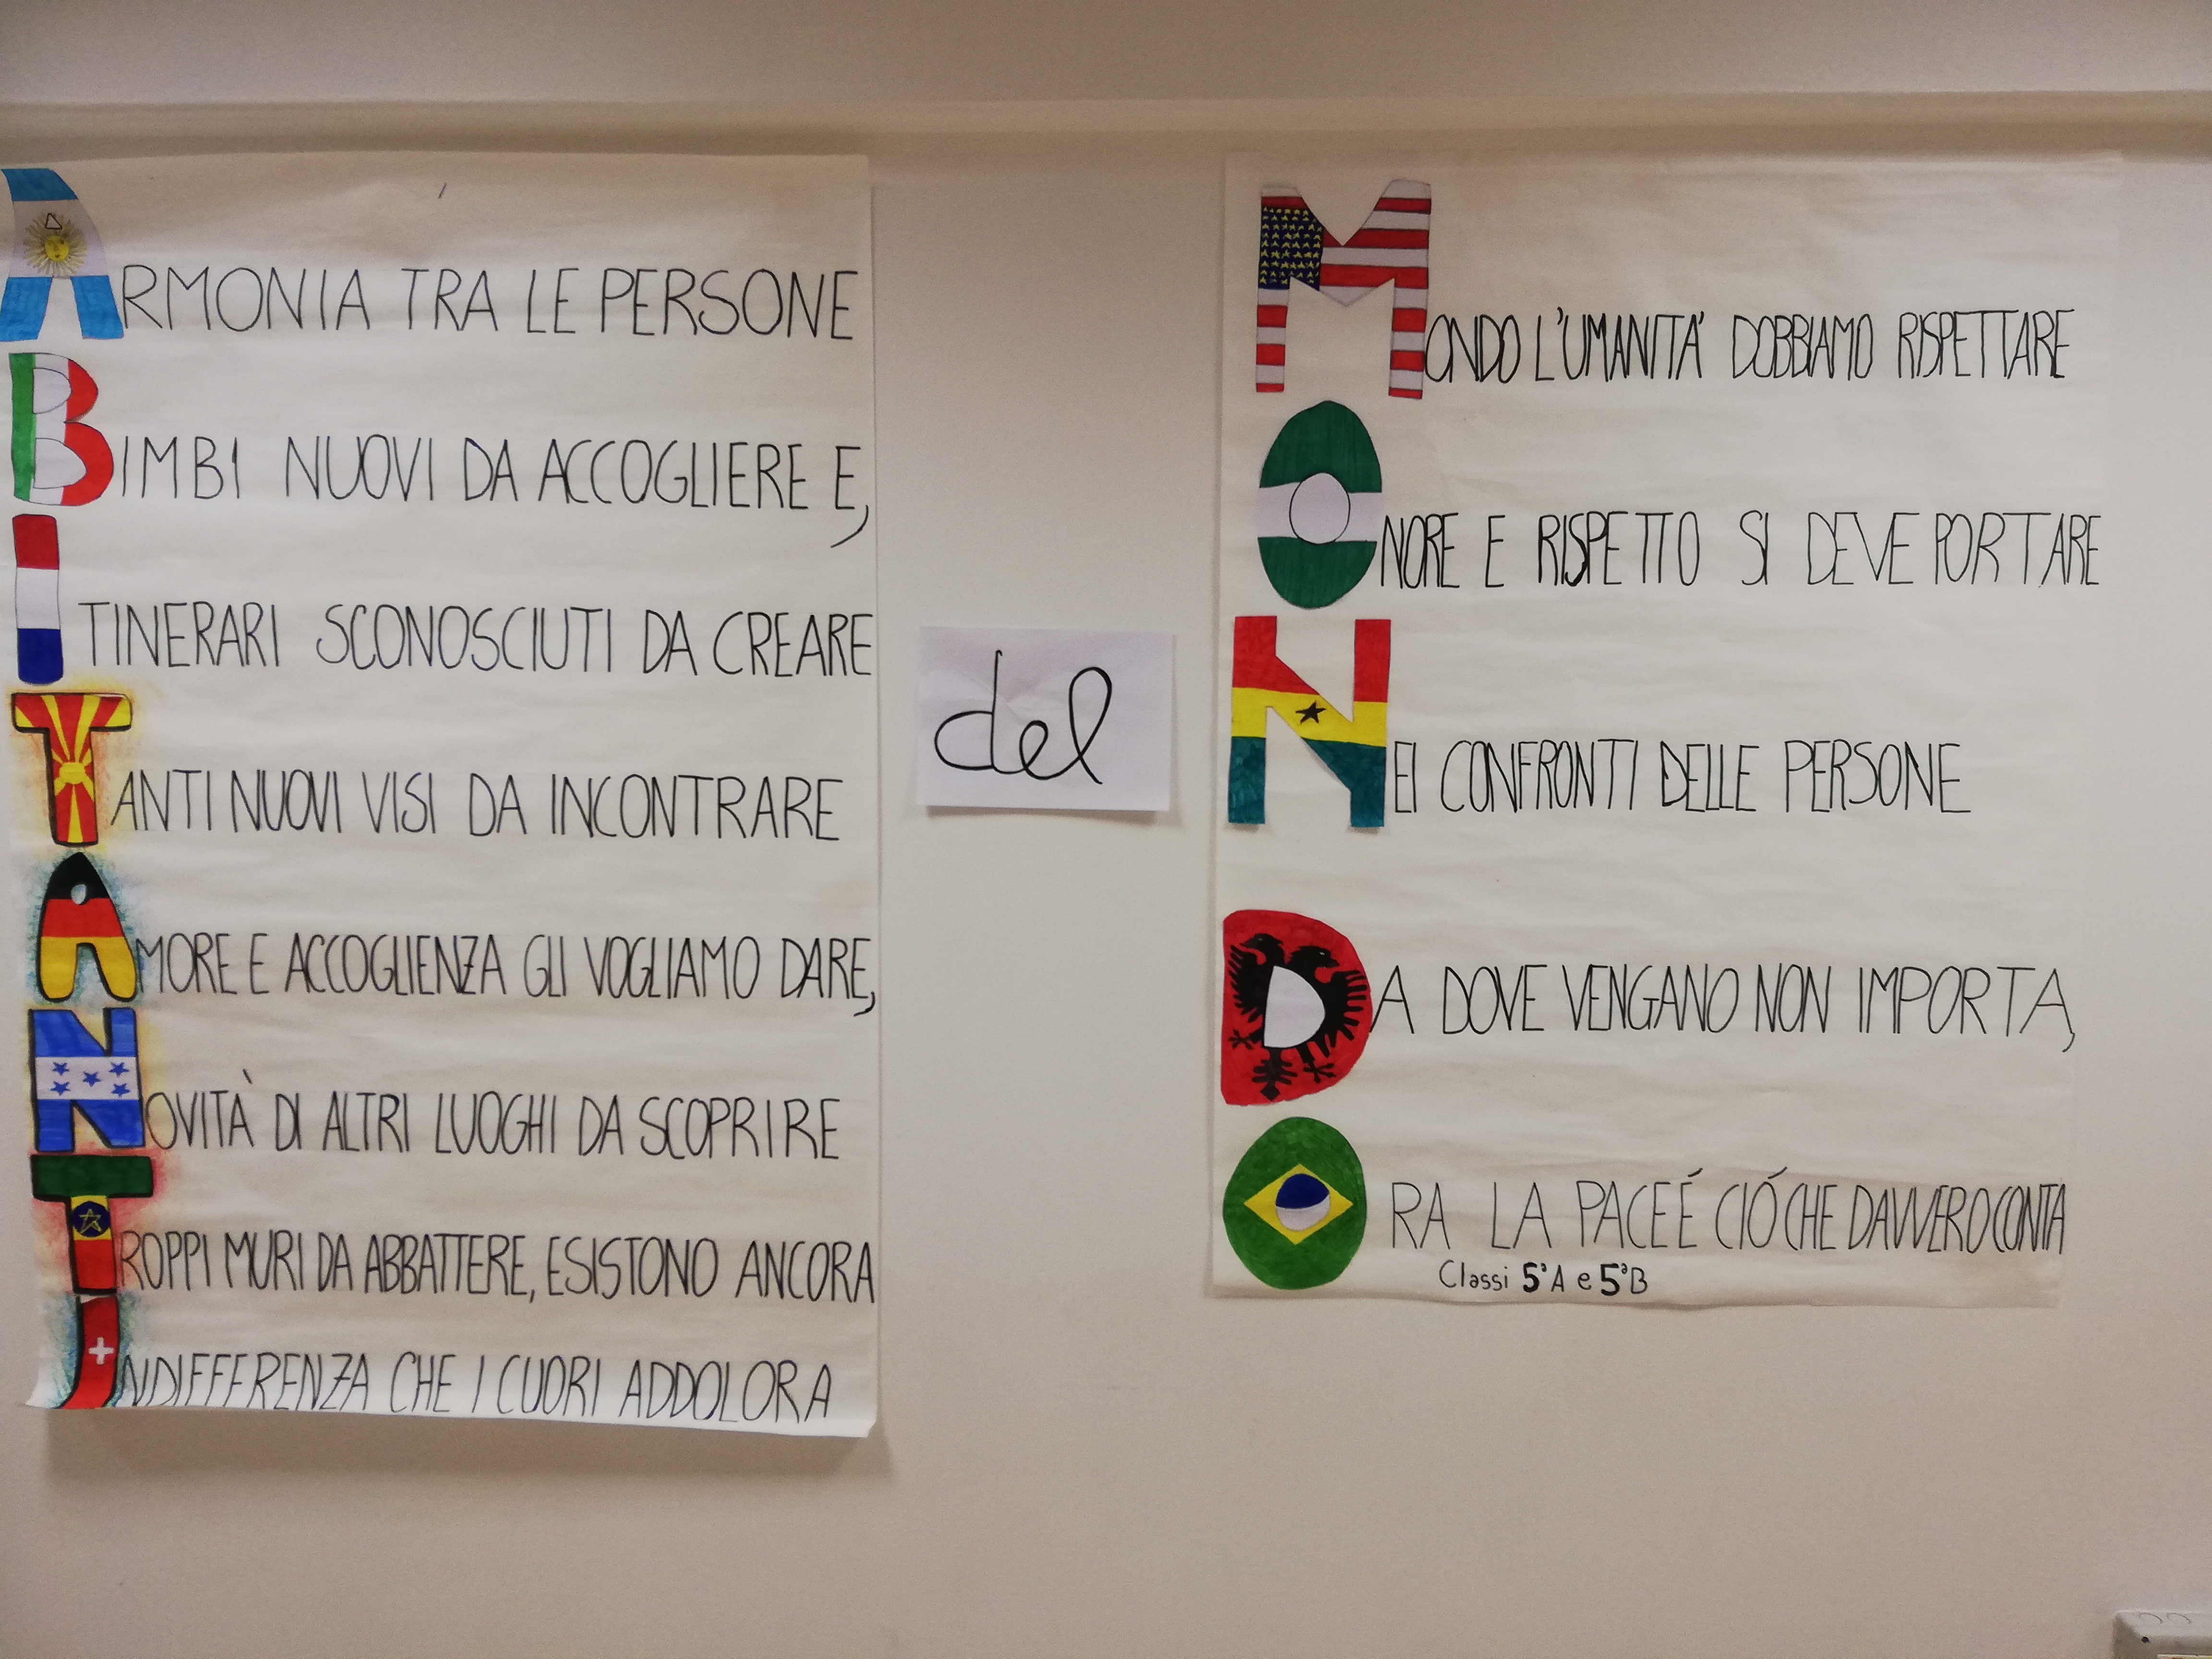 ARMONIA TRA LE PERSONE
BIMBI NUOVI DA ACCOGLIERE E,
ITINERARI SCONOSCIUTI DA CREARE
TANTI NUOVI VISI DA INCONTRARE
AMORE E ACCOGLIENZA GLI VOGLIAMO DARE,
NOVITÀ DI ALTRI LUOGHI DA SCOPRIRE
TROPPI MURI DA ABBATTERE, ESISTONO ANCORA
INDIFFERENZA CHE I CUORI ADDOLORA
del
MONDO L'UMANITA' DOBBIAMO RISPETTARE
ONORE E RISPETTO SI DEVE PORTARE
NEI CONFRONTI DELLE PERSONE
DA DOVE VENGANO NON IMPORTA,
ORA LA PACE É CIÓ CHE DAVVERO CONTA
Classi 5ªA e 5ªB